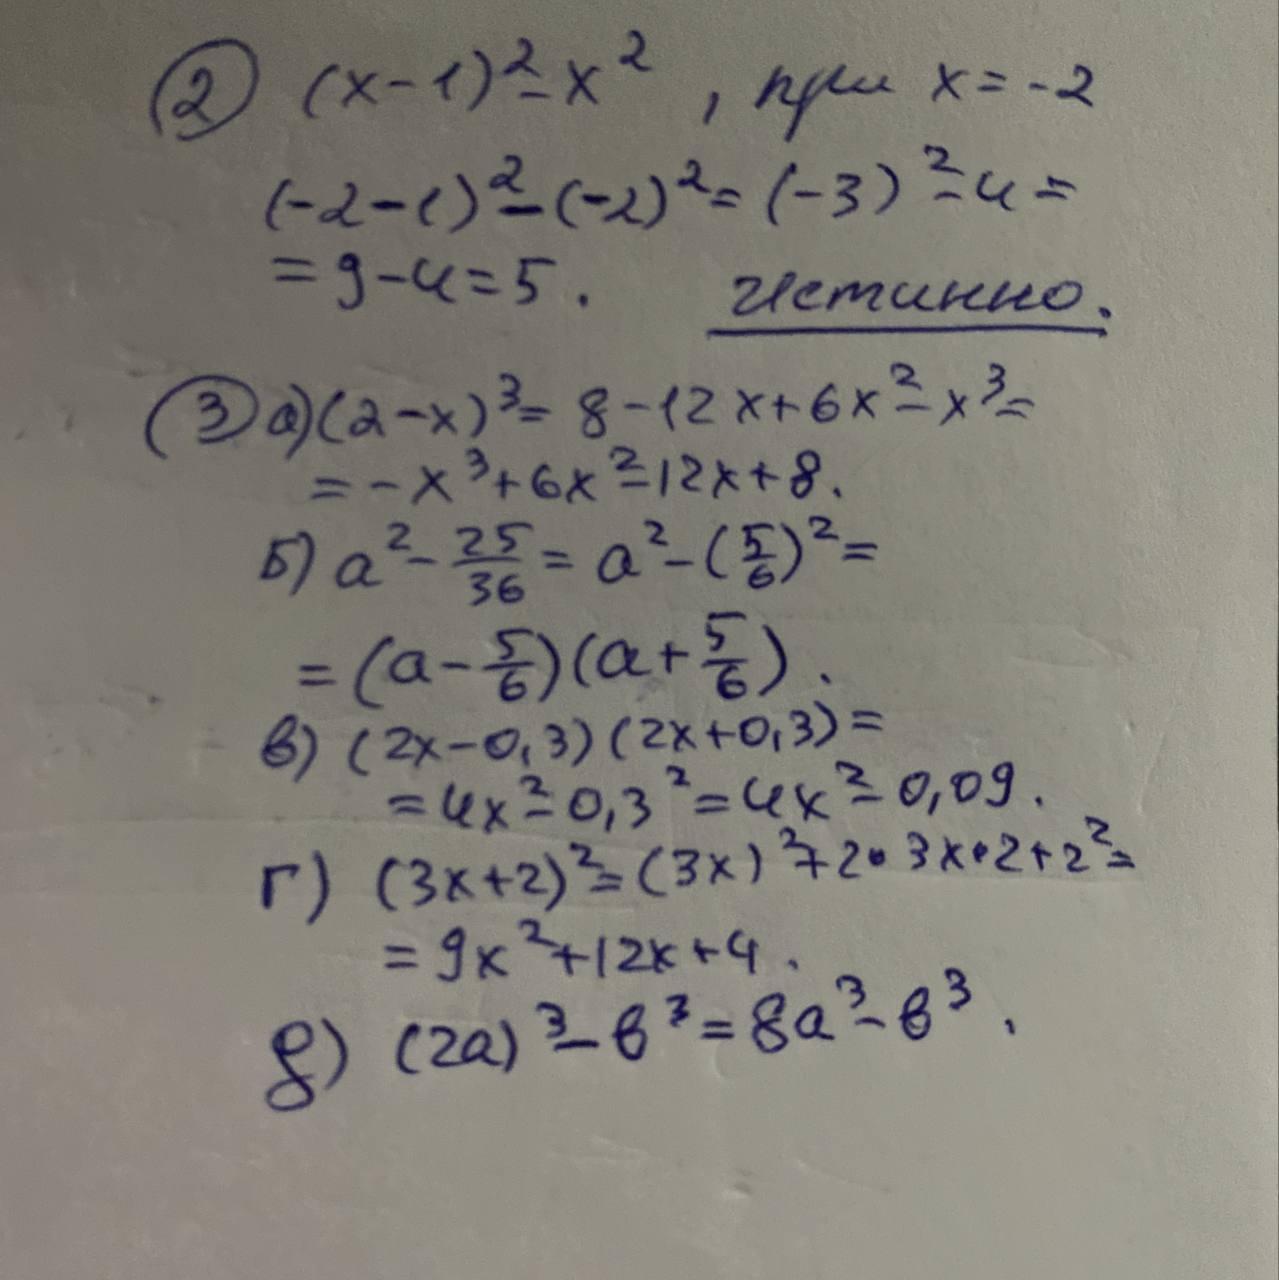 ② (x-1)²-x², при x=-2
(-2-1)²-(-2)²=(-3)²-4=
=9-4=5. Истинно.
③ а) (2-x)³=8-12x+6x²-x³=
=-x³+6x²-12x+8.
Б) a²-25/36=a²-(5/6)²=
=(a-5/6)(a+5/6).
в) (2x-0,3)(2x+0,3)=
=4x²-0,3²=4x²-0,09.
г) (3x+2)²=(3x)²+2•3x•2+2²=
=9x²+12x+4.
д) (2a)³-в³=8a³-в³.